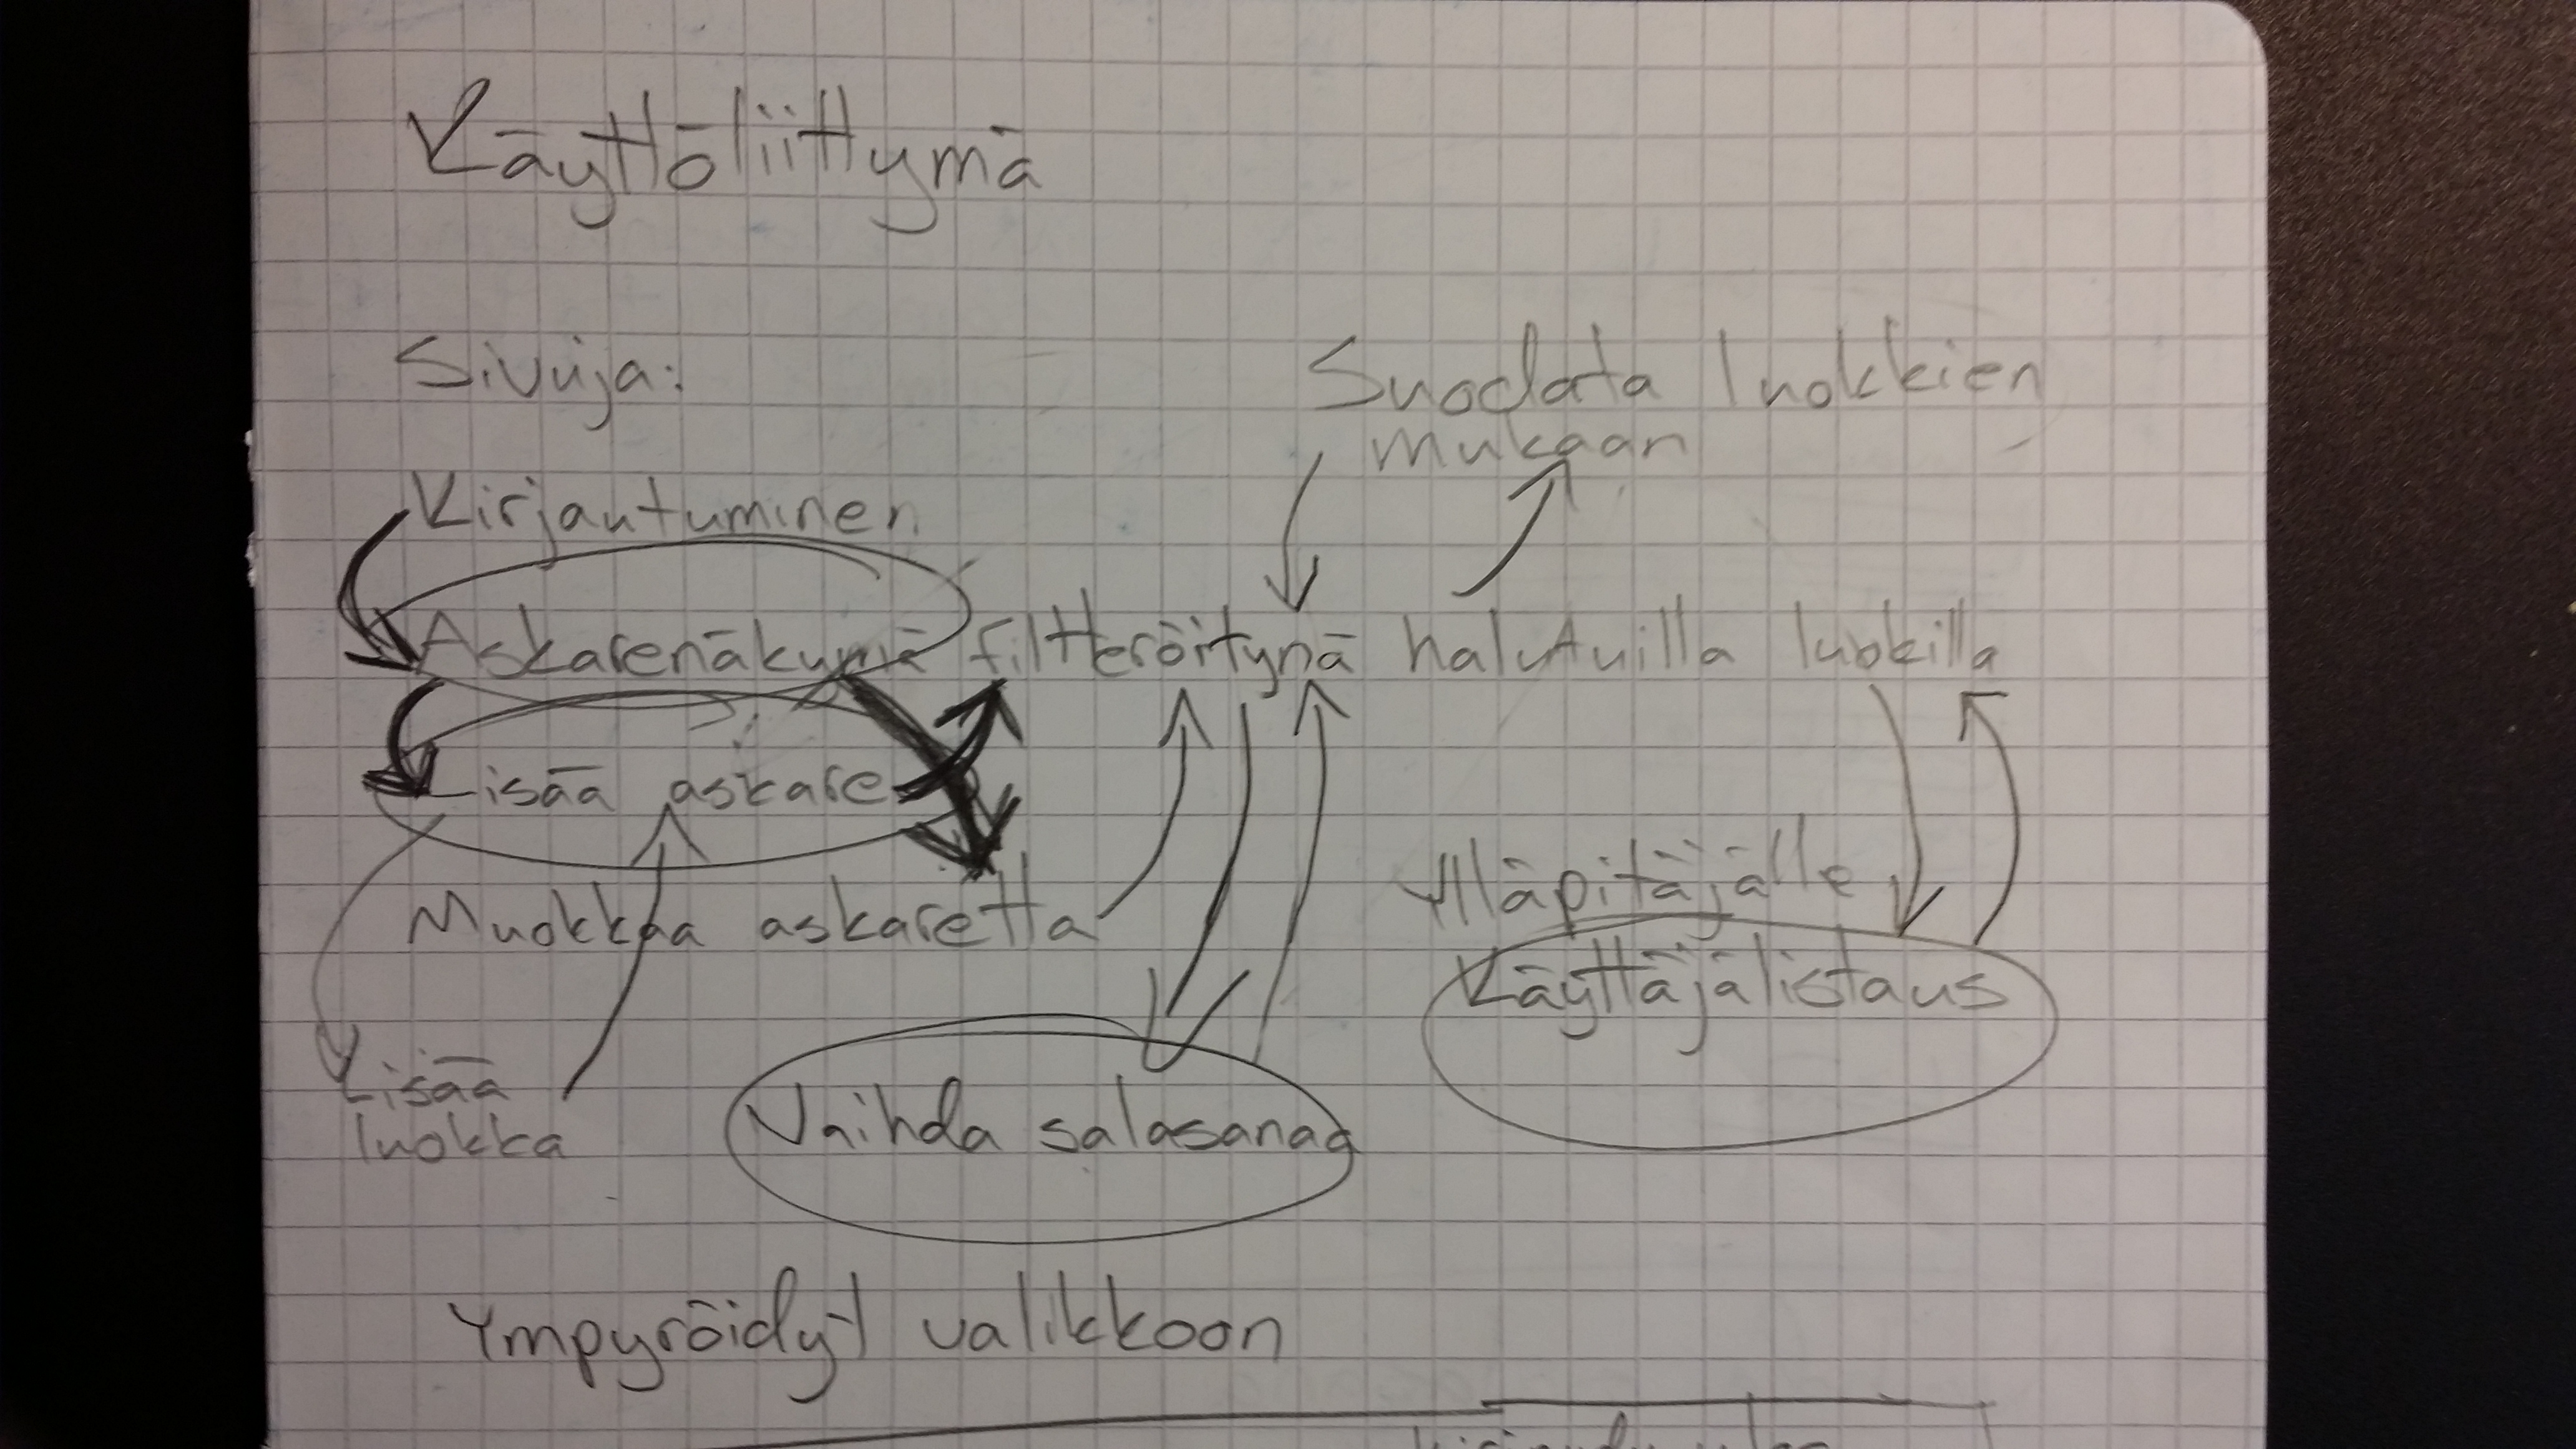 Käyttöliittymä
Sivuja:
Suodata luokkien
mukaan
Kirjautuminen
Askarenäkymä filtteröitynä halutuilla luokilla
Lisää askare
Ylläpitäjälle
Muokkaa askaretta
Käyttäjälistaus
Lisää
luokka
Vaihda salasanaa
Ympyröidyt valikkoon